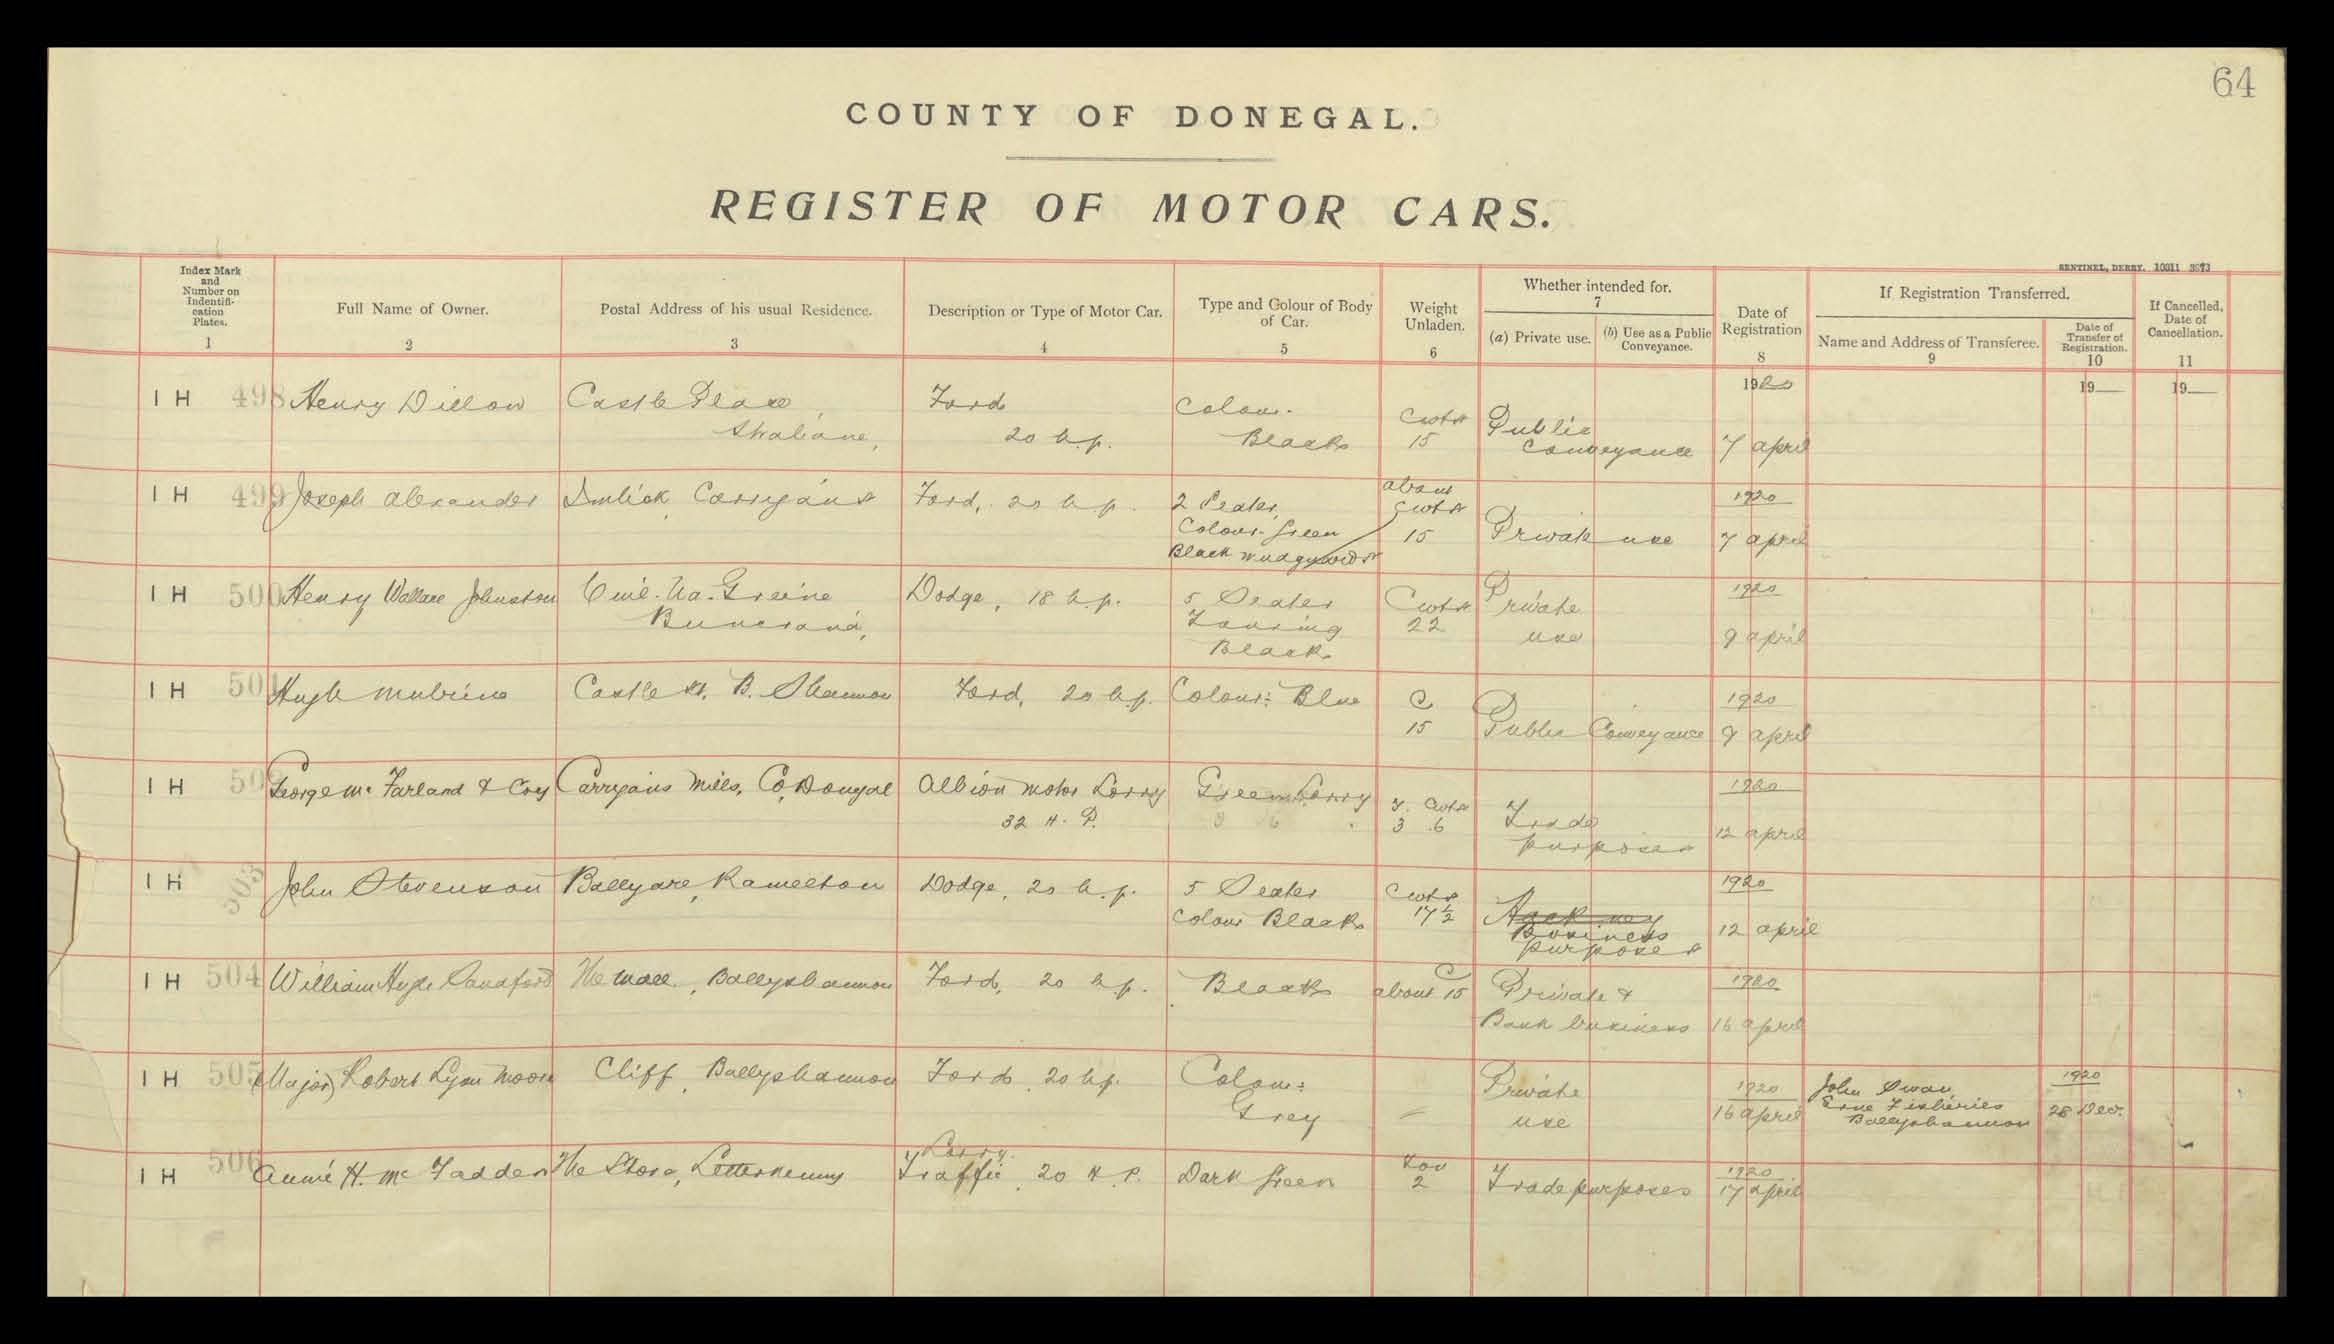 64
COUNTY OF DONEGAL.
REGISTER OF MOTOR CARS.
SENTINEL, DERRY. 10311 3973
Index Mark
and
Number on
Indentifi-
cation
Plates.
1
Full Name of Owner.
2
Postal Address of his usual Residence.
3
Description or Type of Motor Car.
4
Type and Colour of Body
of Car.
5
Weight
Unladen.
6
Whether intended for.
7
(a) Private use.
(b) Use as a Public
Conveyance.
Date of
Registration
8
If Registration Transferred.
Name and Address of Transferee.
9
Date of
Transfer of
Registration.
10
If Cancelled,
Date of
Cancellation.
11
I H 498
Henry Dillon
Castle Place,
Strabane,
Ford
20 h.p.
Colour.
Black
Cwts
15
Public
Conveyance
1920
7 April
19
19
I H 499
Joseph Alexander
Imlick, Carrigans
Ford, 20 h.p.
2 Seater,
Colour. Green
Black mudguards
about
Cwts
15
Private use
1920
7 April
I H 500
Henry Wallace Johnston
Cuil-Na-Greine
Buncrana,
Dodge, 18 h.p.
5 Seater
Touring
Black
Cwts
22
Private
use
1920
9 April
I H 501
Hugh
Castle St, B. Shannon
Ford, 20 h.p.
Colour: Blue
C
15
Public Conveyance
1920
9 April
I H 502
George Mc Farland & Coy
Carrigans Mills, Co, Donegal
Albion Motor Lorry
32 H. P.
Green Lorry
T. Cwts
3 6
Trade
purposes
1920
12 April
I H 503
John Stevenson
Ballyare, Ramelton
Dodge, 20 h.p.
5 Seater
Colour Black
Cwts
17 1/2
Hackney
Business
purposes
1920
12 April
I H 504
William Hyde Sandford
The Mall, Ballyshannon
Ford, 20 h.p.
Black
C
about 15
Private &
Bank business
1920
16 April
I H 505
(Major) Robert Lyon Moore
Cliff, Ballyshannon
Ford, 20 h.p.
Colour:
Grey
Private
use
1920
16 April
John Swan,
Erne Fisheries
Ballyshannon
1920
28 Dec.
I H 506
Annie H. Mc Fadden
The Store, Letterkenny
Lorry.
Traffic, 20 H. P.
Dark Green
Ton
2
Trade purposes
1920
17 April